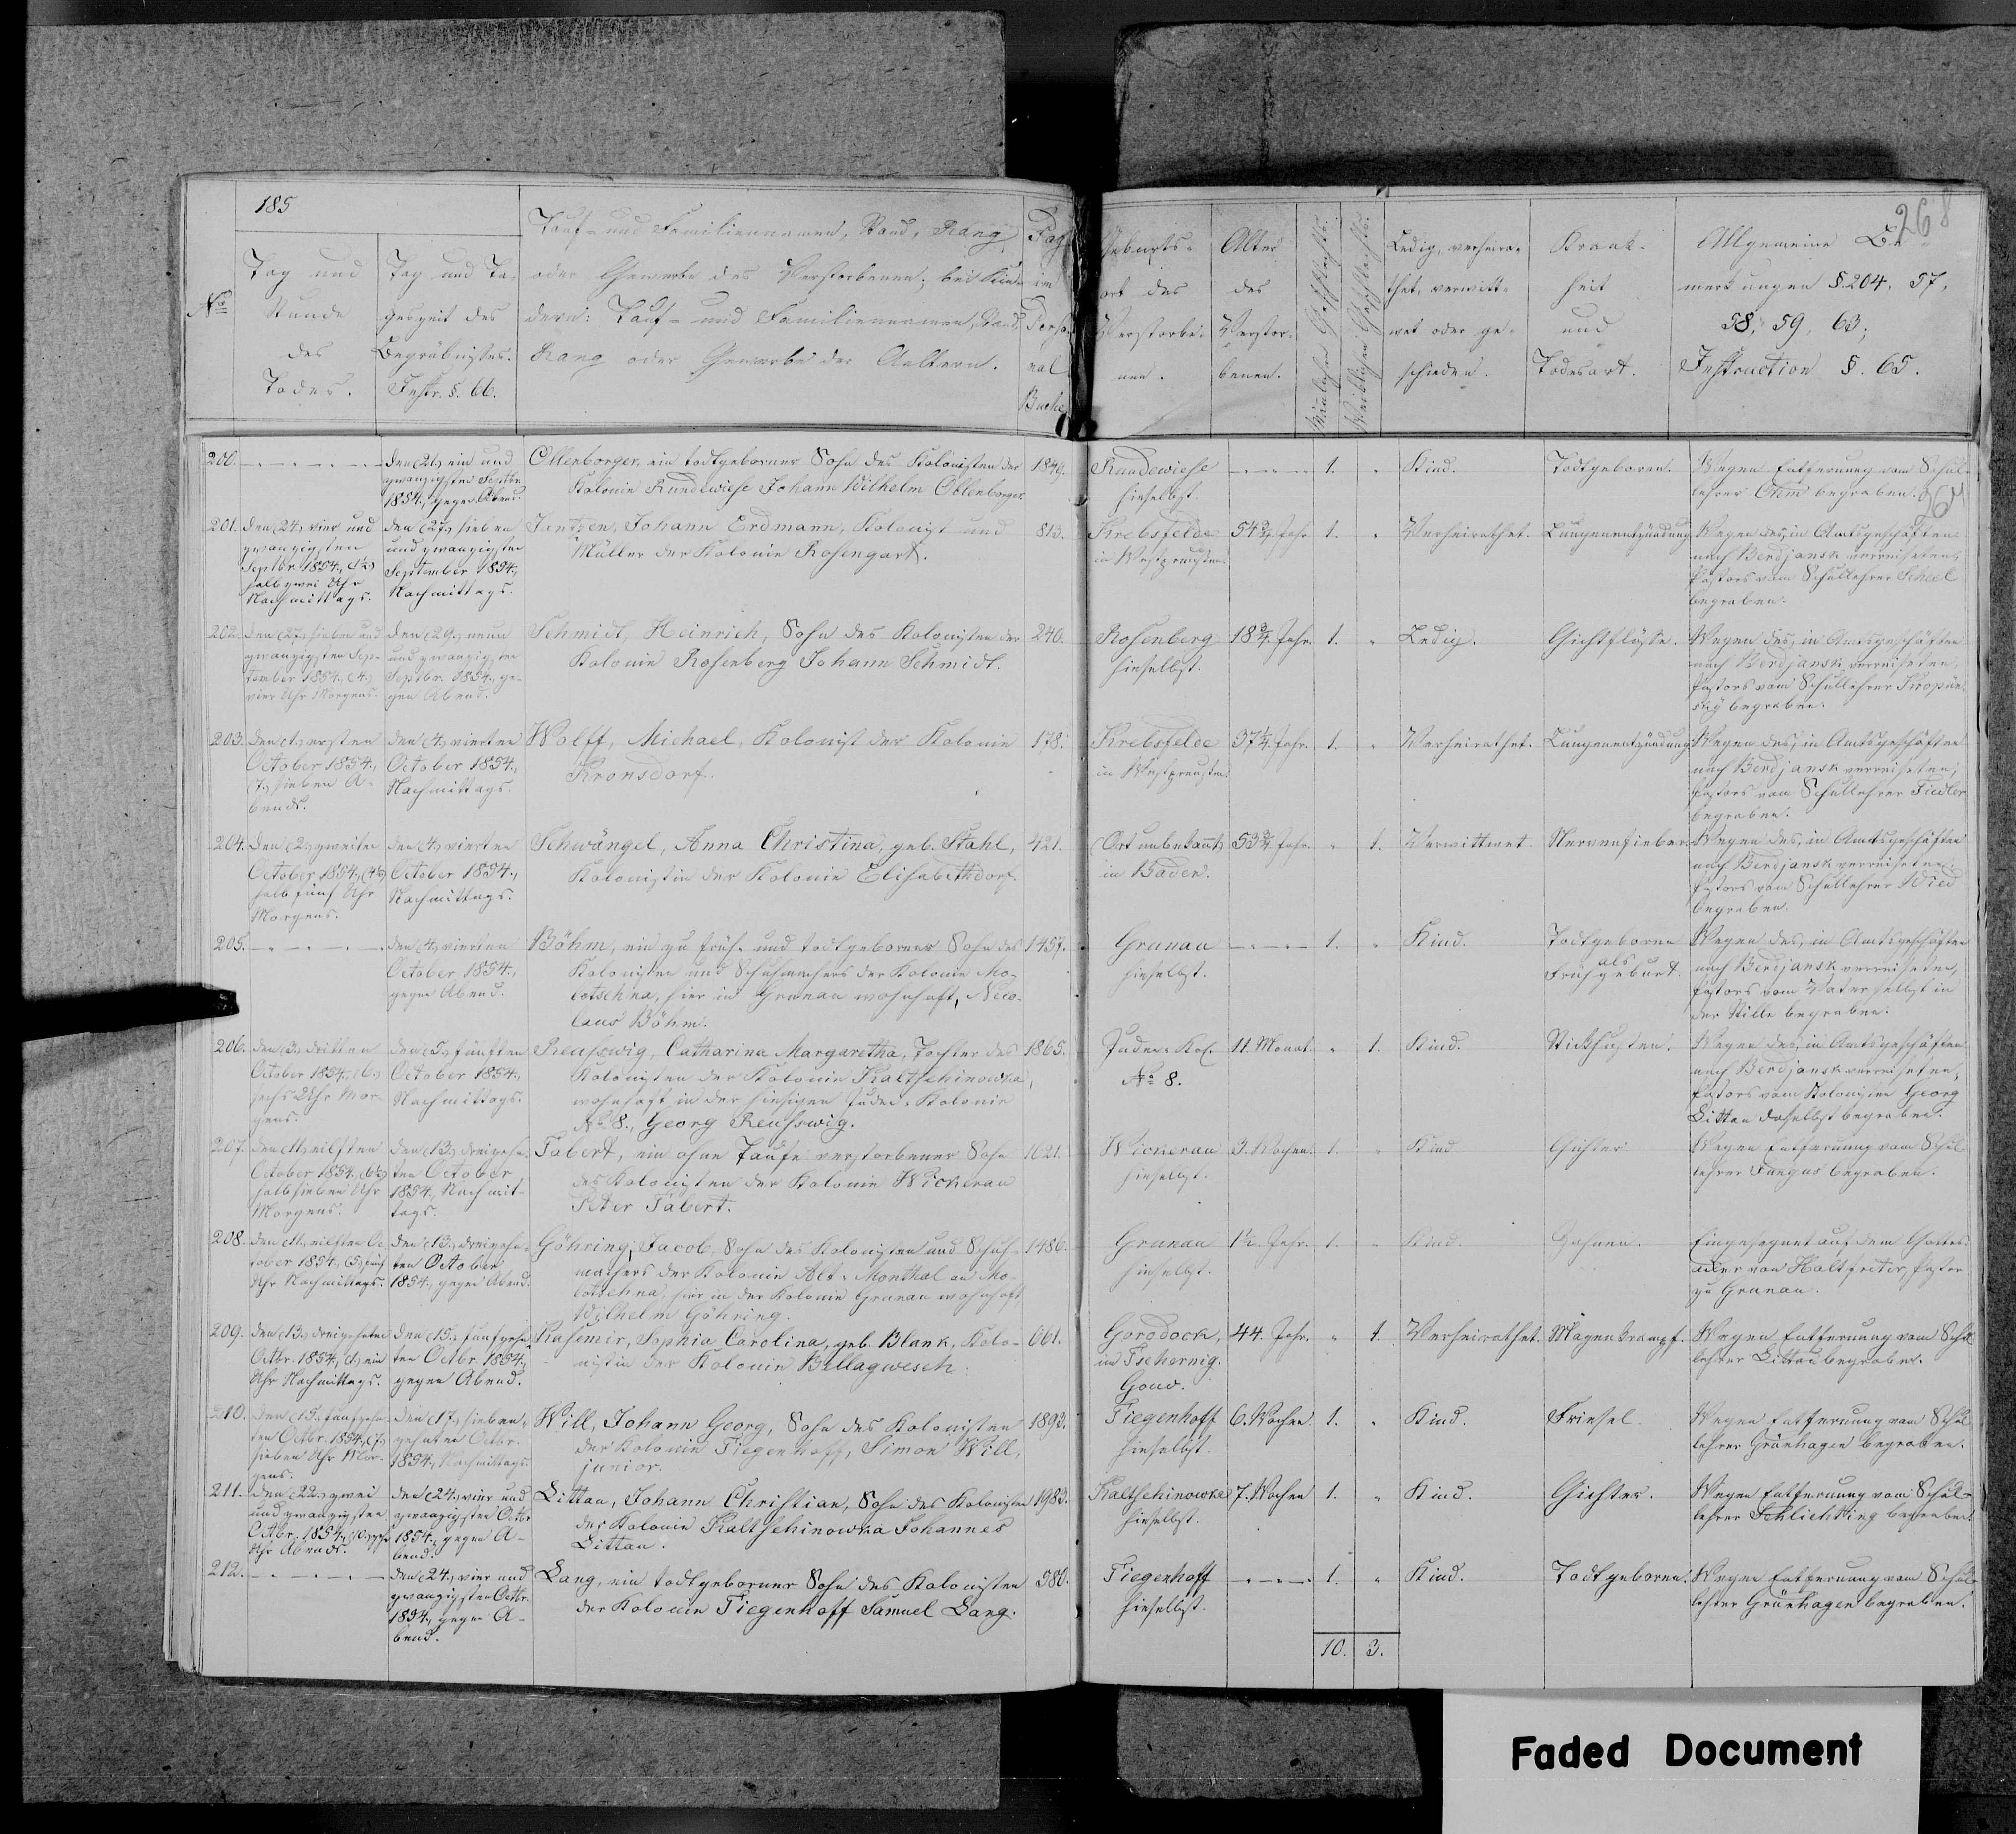 185
268
264
No
Tag und
Stunde
des
Todes.
Tag und Ta-
geszeit des
Begräbnisses.
Instr. §. 66.
Tauf- und Familiennamen, Stand, Rang
oder Gewerbe des Verstorbenen; bei Kin-
dern: Tauf- und Familiennamen, Stand,
Rang oder Gewerbe der Aeltern.
Pag.
im
Perso-
nal
Buche
Geburts-
ort des
Verstorbe-
nen.
Alter
des
Verstor-
benen.
Männlichen Geschlechts.
Weiblichen Geschlechts.
Ledig, verheira-
thet, verwitt-
wet oder ge-
schieden.
Krank-
heit
und
Todesart.
Allgemeine Be-
merkungen §. 204, 57,
58, 59, 63;
Instruction §. 65.
200.
den (21.) ein und
zwanzigsten Septbr.
1854., gegen Abend.
Ollenborger, ein todtgeborner Sohn des Kolonisten der
Kolonie Rundewiese Johann Wilhelm Ollenborger.
1849.
Rundewiese
hieselbst.
1.
Kind.
Todtgeboren.
Wegen Entfernung vom Schul-
lehrer Ohm begraben.
201.
den (24.) vier und
zwanzigsten
Septbr. 1854., (1½)
halb zwei Uhr
Nachmittags.
den (27.) sieben
und zwanzigsten
September 1854.,
Nachmittags.
Jantzen, Johann Erdmann, Kolonist und
Müller der Kolonie Rosengart.
813.
Krebsfelde
in Westpreußen.
54¾. Jahr
1.
Verheirathet.
Lungenentzündung
Wegen des, in Amtsgeschäften
nach Berdjansk verreiseten,
Pastors vom Schullehrer Scheel
begraben.
202.
den (27.) sieben und
zwanzigsten Sep-
tember 1854., (4.)
vier Uhr Morgens.
den (29.) neun
und zwanzigsten
Septbr. 1854., ge-
gen Abend.
Schmidt, Heinrich, Sohn des Kolonisten der
Kolonie Rosenberg Johann Schmidt.
240.
Rosenberg
hieselbst.
18¾. Jahr.
1.
Ledig.
Gichtflüsse.
Wegen des, in Amtsgeschäften
nach Berdjansk verreiseten,
Pastors vom Schullehrer
begraben.
203.
den (1.) ersten
October 1854.,
(7.) sieben A-
bends.
den (4.) vierten
October 1854.,
Nachmittags.
Wolff, Michael, Kolonist der Kolonie
Kronsdorf.
178.
Krebsfelde
in Westpreußen.
37¼. Jahr.
1.
Verheirathet.
Lungenentzündung
Wegen des, in Amtsgeschäften
nach Berdjansk verreiseten,
Pastors vom Schullehrer Fiedler
begraben.
204.
den (2.) zweiten
October 1854., (4½)
halb fünf Uhr
Morgens.
den (4.) vierten
October 1854.,
Nachmittags.
Schwängel, Anna Christina, geb. Stahl,
Kolonistin der Kolonie Elisabethdorf.
421.
(Ort unbekannt)
in Baden.
53¾. Jahr.
1.
Verwittwet.
Nervenfieber
Wegen des, in Amtsgeschäften
nach Berdjansk verreiseten,
Pastors vom Schullehrer Wied
begraben.
205.
den (4.) vierten
October 1854.,
gegen Abend.
Böhm, ein zu früh- und todtgeborner Sohn des
Kolonisten und Schuhmachers der Kolonie Mo-
lotschna, hier in Grunau wohnhaft, Nico-
laus Böhm.
1457.
Grunau
hieselbst.
1.
Kind.
Todtgeboren
als
Frühgeburt.
Wegen des, in Amtsgeschäften
nach Berdjansk verreiseten,
Pastors vom Vater selbst in
der Stille begraben.
206.
den (3.) dritten
October 1854., (6.)
sechs Uhr Mor-
gens.
den (5.) fünften
October 1854.,
Nachmittags.
Reusswig, Catharina Margaretha, Tochter des
Kolonisten der Kolonie Kaltschinowka,
wohnhaft in der hiesigen Juden-Kolonie
No 8., Georg Reusswig.
1865.
Juden-Kol.
No 8.
11. Monat.
1.
Kind.
Stickhusten.
Wegen des, in Amtsgeschäften
nach Berdjansk verreiseten,
Pastors vom Kolonisten Georg
Littau daselbst begraben.
207.
den (11.) eilften
October 1854., (6½)
halb sieben Uhr
Morgens.
den (13.) dreizehn-
ten October
1854., Nachmit-
tags.
Tabert, ein ohne Taufe verstorbener Sohn
des Kolonisten der Kolonie Wickerau
Peter Tabert.
1621.
Wickerau
hieselbst.
3. Wochen.
1.
Kind
Gichter
Wegen Entfernung vom Schul-
lehrer Fangus begraben.
208.
den (11.) eilften Oc-
tober 1854., (5.) fünf
Uhr Nachmittags.
den (13.) dreizehn-
ten October
1854., gegen Abend.
Göhring, Jacob, Sohn des Kolonisten und Schuh-
machers der Kolonie Alt-Monthal an Mo-
lotschna, hier in der Kolonie Grunau wohnhaft,
Wilhelm Göhring.
1486.
Grunau
hieselbst.
1½. Jahr.
1.
Kind.
Zahnen.
Eingesegnet auf dem Gottes-
acker von Holtfreter, Pastor
zu Grunau.
209.
den (13.) dreizehnten
Octbr. 1854., (1.) ein
Uhr Nachmittags.
den (15.) fünfzehn-
ten Octbr. 1854.,
gegen Abend.
Kasemir, Sophia Carolina, geb. Blank, Kolo-
nistin der Kolonie Bellagwesch.
661.
Gorodock,
im Tschernig.
Gouv.
44. Jahr.
1.
Verheirathet.
Magenkrampf.
Wegen Entfernung vom Schul-
lehrer Littau begraben.
210.
den (15.) fünfzehn-
ten Octbr. 1854., (7.)
sieben Uhr Mor-
gens.
den (17.) sieben-
zehnten Octbr.
1854., Nachmittags.
Will, Johann Georg, Sohn des Kolonisten
der Kolonie Tiegenhoff, Simon Will,
junior.
1893.
Tiegenhoff
hieselbst.
6. Wochen
1.
Kind.
Friesel.
Wegen Entfernung vom Schul-
lehrer Grünhagen begraben.
211.
den (22.) zwei
und zwanzigsten
Octbr. 1854., (10.) zehn
Uhr Abends.
den (24.) vier und
zwanzigsten Octbr.
1854., gegen A-
bend.
Littau, Johann Christian, Sohn des Kolonisten
der Kolonie Kaltschinowka Johannes
Littau.
1983.
Kaltschinowka
hieselbst.
7. Wochen
1.
Kind.
Gichter.
Wegen Entfernung vom Schul-
lehrer Schlichting begraben.
212.
den (24.) vier und
zwanzigsten Octbr.
1854., gegen A-
bend.
Lang, ein todtgeborner Sohn des Kolonisten
der Kolonie Tiegenhoff Samuel Lang.
980.
Tiegenhoff
hieselbst.
1.
Kind.
Todtgeboren.
Wegen Entfernung vom Schul-
lehrer Grünhagen begraben.
10.
3.
Faded Document